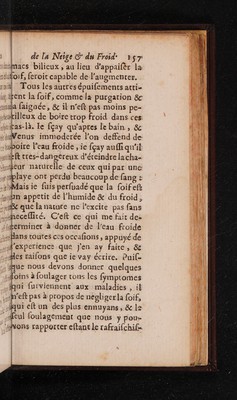 de la Neige & du Froid. 157
macs bilieux, au lieu d'appaiser la
soif, seroit capable de l'augmenter.
Tous les autres épuisemens atti-
rent la soif, comme la purgation &
la saignée, & il n'est pas moins pe-
rilleux de boire trop froid dans ces
cas-là. Ie sçay qu'apres le bain, &
Venus immoderée l'on deffend de
boire l'eau froide, ie sçay aussi qu'il
est tres-dangereux d'éteindre la cha-
leur naturelle de ceux qui par une
playe ont perdu beaucoup de sang :
Mais ie suis persuadé que la soif est
un appetit de l'humide & du froid,
& que la nature ne l'excite pas sans
necessité. C'est ce qui me fait de-
terminer à donner de l'eau froide
dans toutes ces occasions, appuyé de
l'experience que j'en ay faite, &
des raisons que ie vay écrire. Puis-
que nous devons donner quelques
soins à soulager tous les symptomes
qui surviennent aux maladies, il
n'est pas à propos de negliger la soif,
qui est un des plus ennuyans, & le
seul soulagement que nous y pou-
vons rapporter estant le rafraischis-